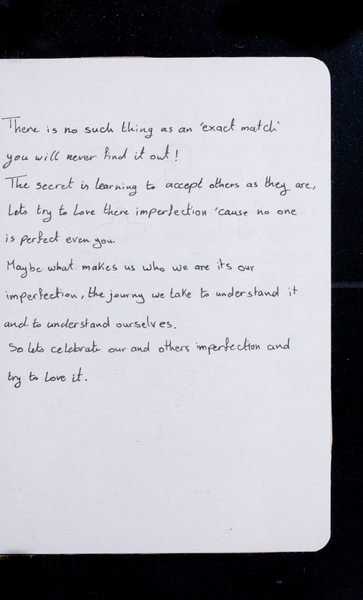 There is no such thing as an 'exact match'
you will never find it out!
The secret is learning to accept others as they are,
Lets try to love there imperfection 'cause no one
is perfect even you.
Maybe what makes us who we are its our
imperfection, the journy we take to understand it
and to understand ourselves.
So lets celebrate our and others imperfection and
try to love it.